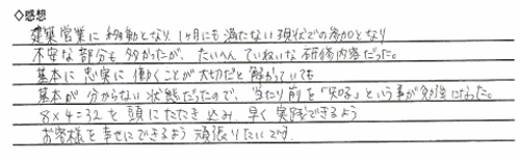 ◇感想
建築営業に移動となり、1ヶ月にも満たない現状での参加となり
不安な部分も多かったが、たいへんていねいな研修内容だった。
基本に忠実に働くことが大切だと解かっていても
基本が分からない状態だったので、当たり前を「知る」という事が勉強になった。
8×4=32を頭にたたき込み早く実践できるよう
お客様を幸せにできるよう頑張りたいです